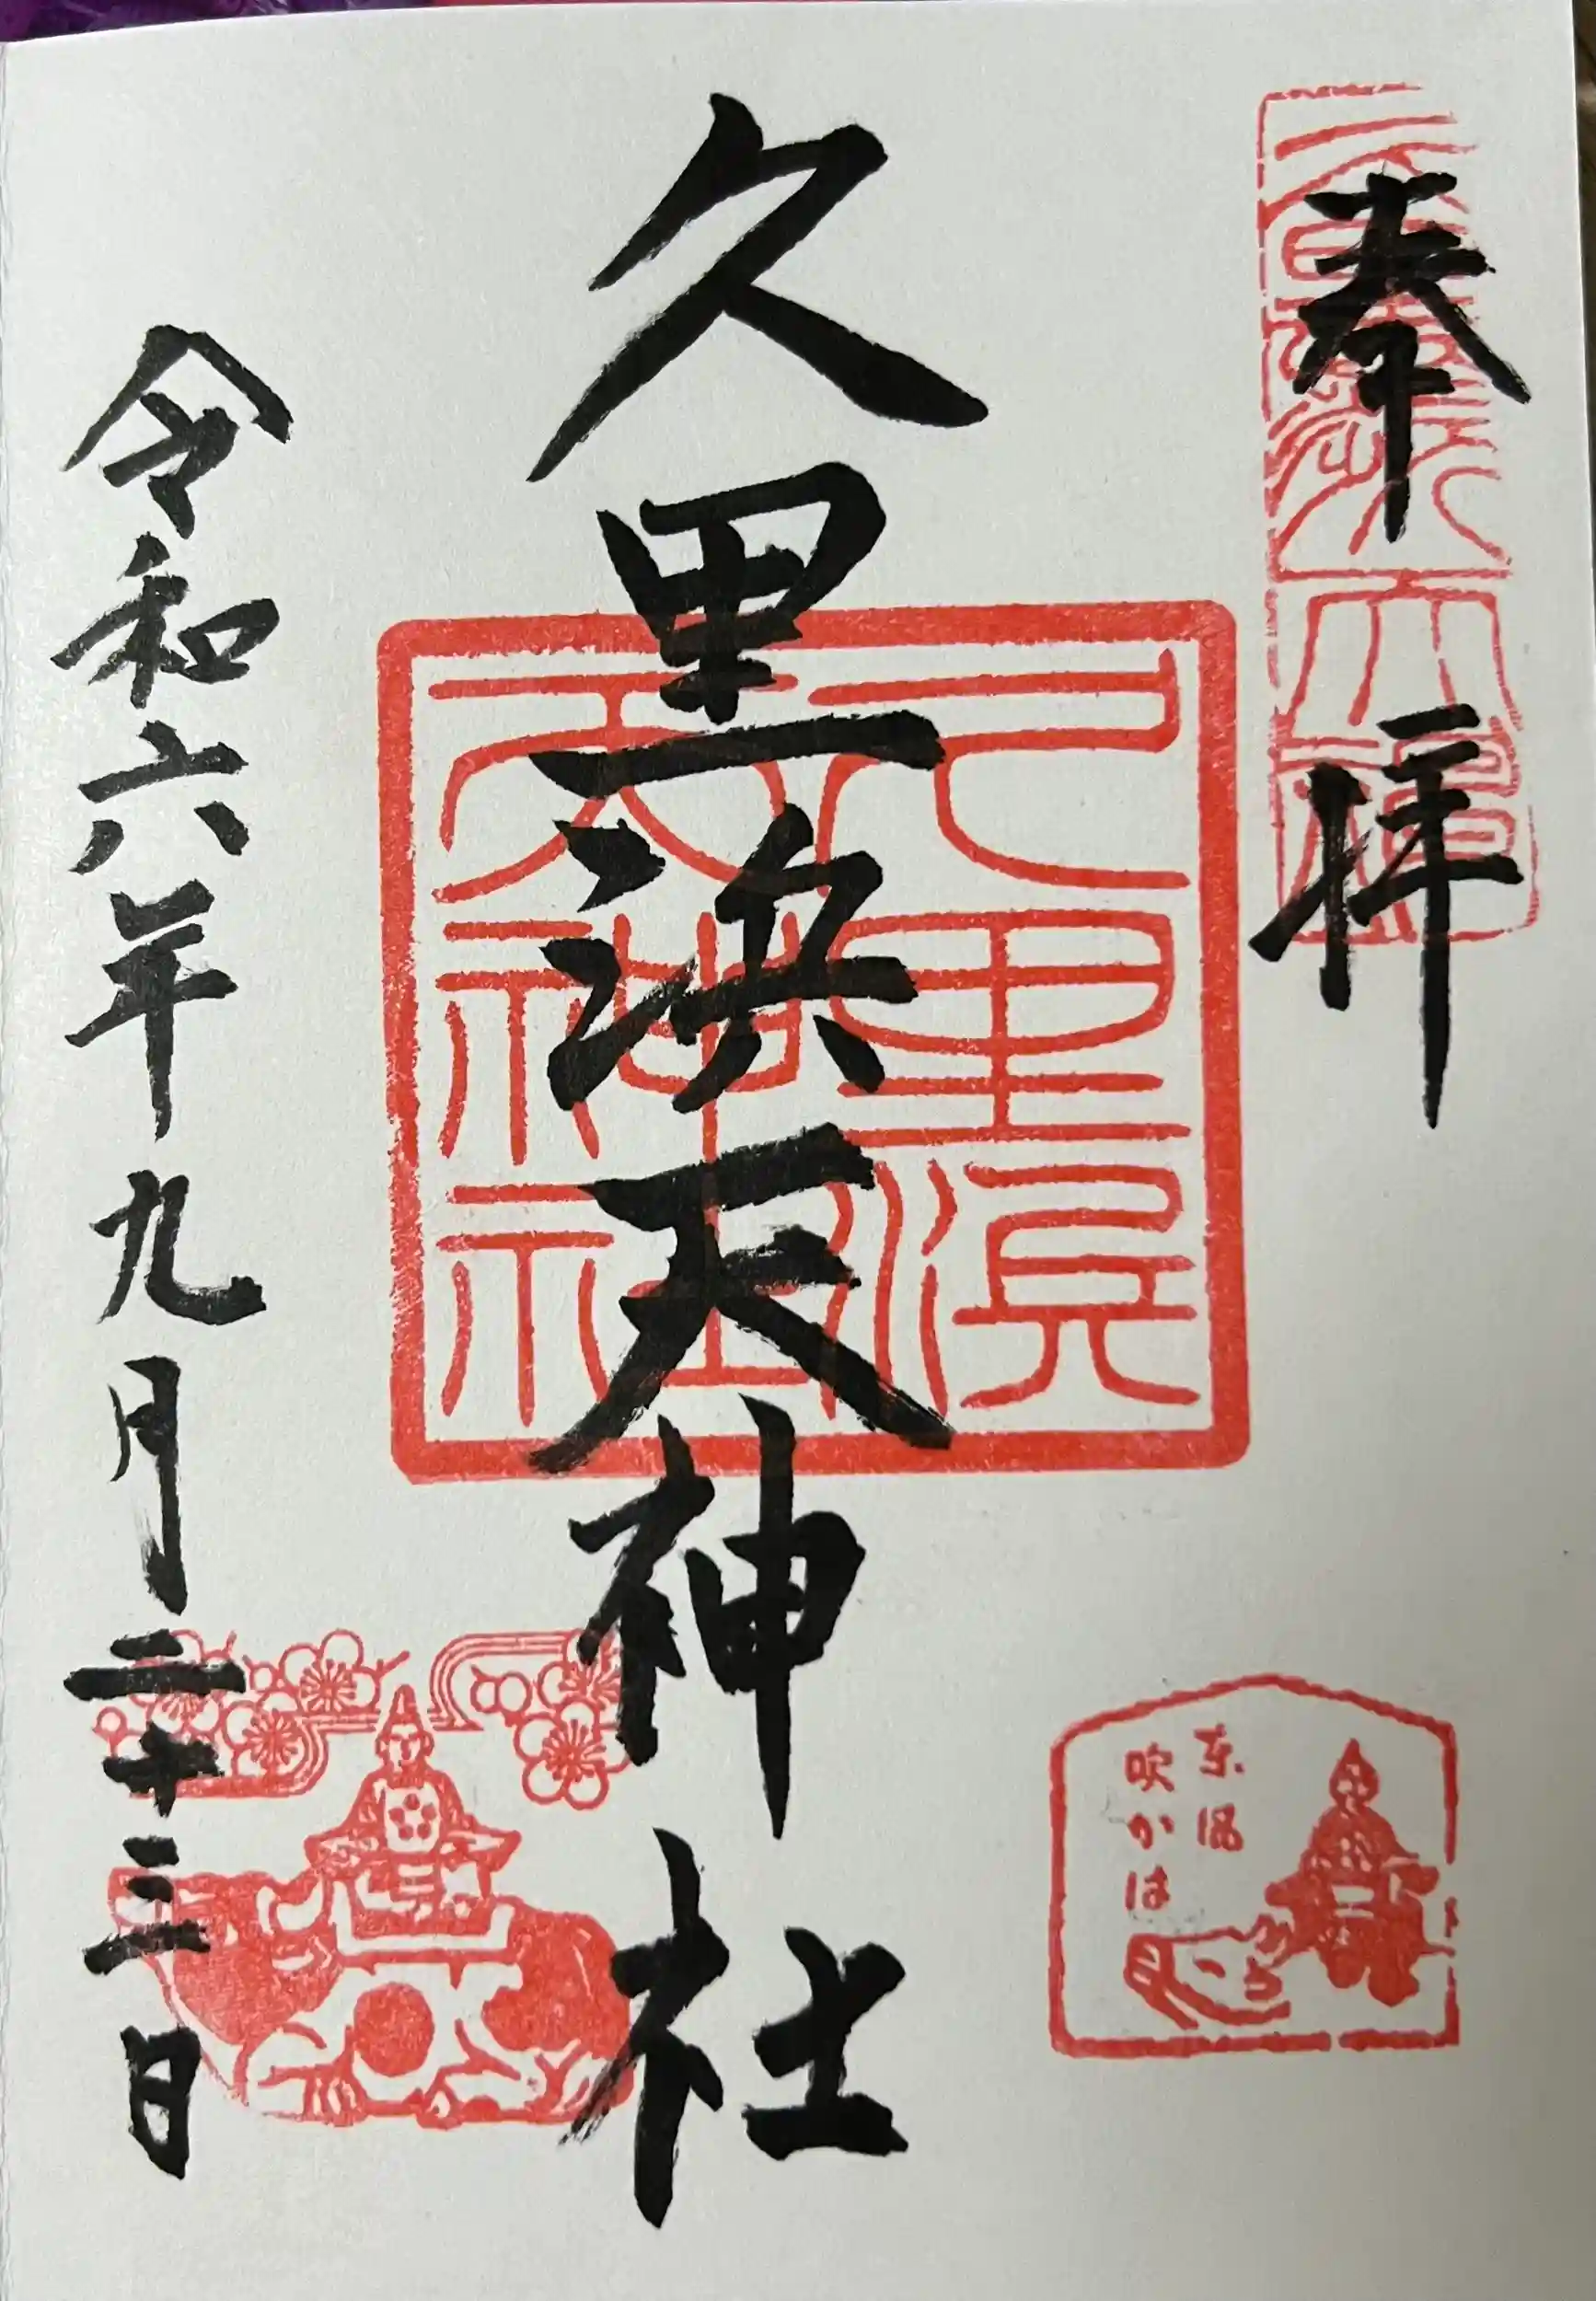 奉拝
東風
吹かは
久里浜天神社
久里浜
天神社
令和六年九月二十三日